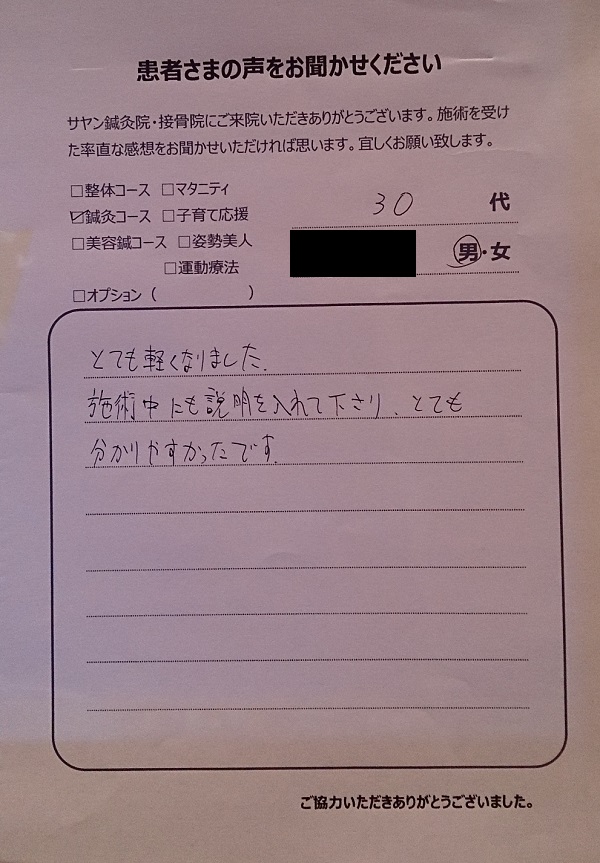 患者さまの声をお聞かせください
サヤン鍼灸院・接骨院にご来院いただきありがとうございます。施術を受け
た率直な感想をお聞かせいただければ思います。宜しくお願い致します。
□整体コース □マタニティ
☑鍼灸コース □子育て応援
30 代
□美容鍼コース □姿勢美人
男・女
□運動療法
□オプション（ ）
とても軽くなりました.
施術中にも説明を入れて下さり、とても
分かりやすかったです.
ご協力いただきありがとうございました。